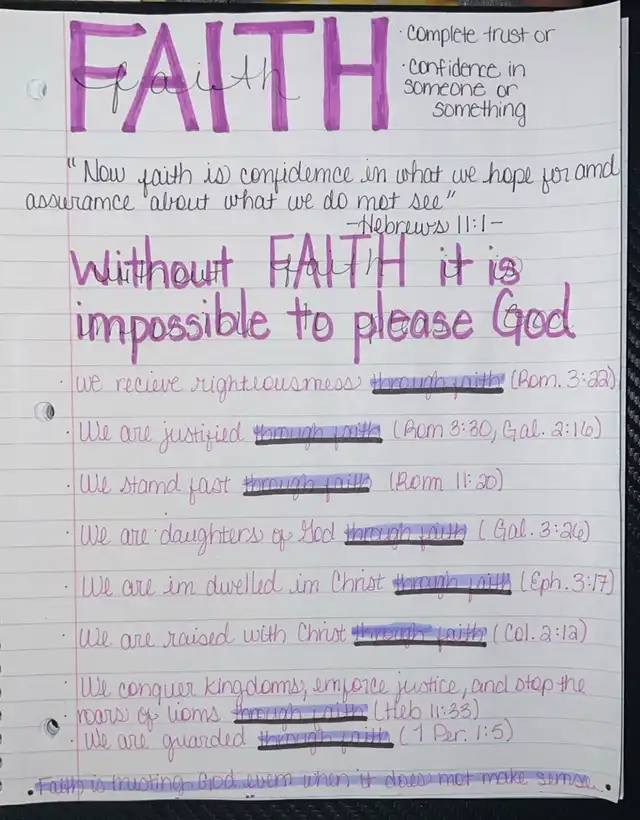 FAITH
faith
· complete trust or
· confidence in
someone or
something
"Now faith is confidence in what we hope for and
assurance about what we do not see"
-Hebrews 11:1-
Without FAITH it is
impossible to please God
· we recieve righteousness through faith (Rom. 3:22)
· We are justified through faith (Rom 3:30, Gal. 2:16)
· We stand fast through faith (Rom 11:20)
· We are daughters of God through faith (Gal. 3:26)
· We are in dwelled in Christ through faith (Eph. 3:17)
· We are raised with Christ through faith (Col. 2:12)
· We conquer kingdoms, enforce justice, and stop the
roars of lions through faith (Heb 11:33)
· We are guarded through faith (1 Per. 1:5)
· Faith is trusting God even when it does not make sense.·